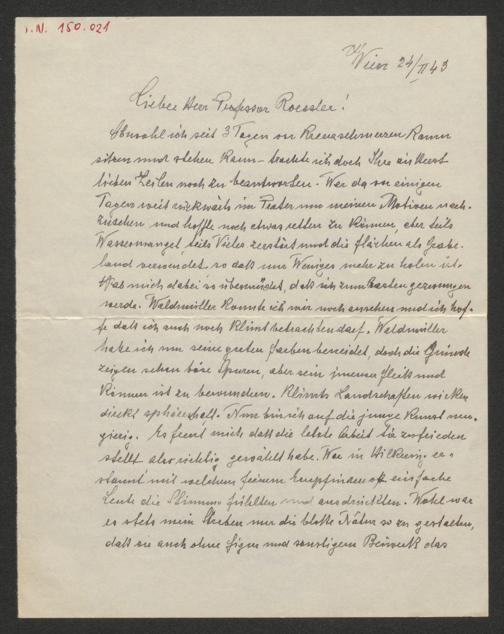 I.N. 150.021
Wien 24/II 43
Lieber Herr Professor Roessler!
Obwohl ich seit 3 Tagen vor Kreuzschmerzen kaum
sitzen und stehen kann – trachte ich doch Ihre äusserst
lieben Zeilen noch zu beantworten. War da vor einigen
Tagen weit rückwärts im Prater um meinen Motiven nach-
zusehen und hoffte noch etwas retten zu können, aber teils
Wassermangel, teils Vieles zerstört und die Flächen als Grabe-
land verwendet, so daß nur Weniges mehr zu holen ist.
Was mich dabei so überwindet, daß ich zum Rasten gezwungen
werde. Waldmüller konnte ich mir noch ansehen und ich hof-
fe daß ich auch noch Klimt betrachten darf. Waldmüller
habe ich um seine guten Farben beneidet, doch die Gründe
zeigen schon böse Spuren, aber sein immenser Fleiß und
Können ist zu bewundern. Klimts Landschaften wirken
direkt sphärenhaft. Nun bin ich auf die junge Kunst neu-
gierig. Es freut mich daß die letzte Arbeit Sie zufrieden
stellt also richtig gewählt habe. War in erstaunt
mit welchem feinem Empfinden oft einfache
Leute die Stimmung fühlten und ausdrückten. Wohl war
es stets mein Streben nur die bloße Natur so zu gestalten,
daß sie auch ohne Figur und sonstigem Beiwerk das